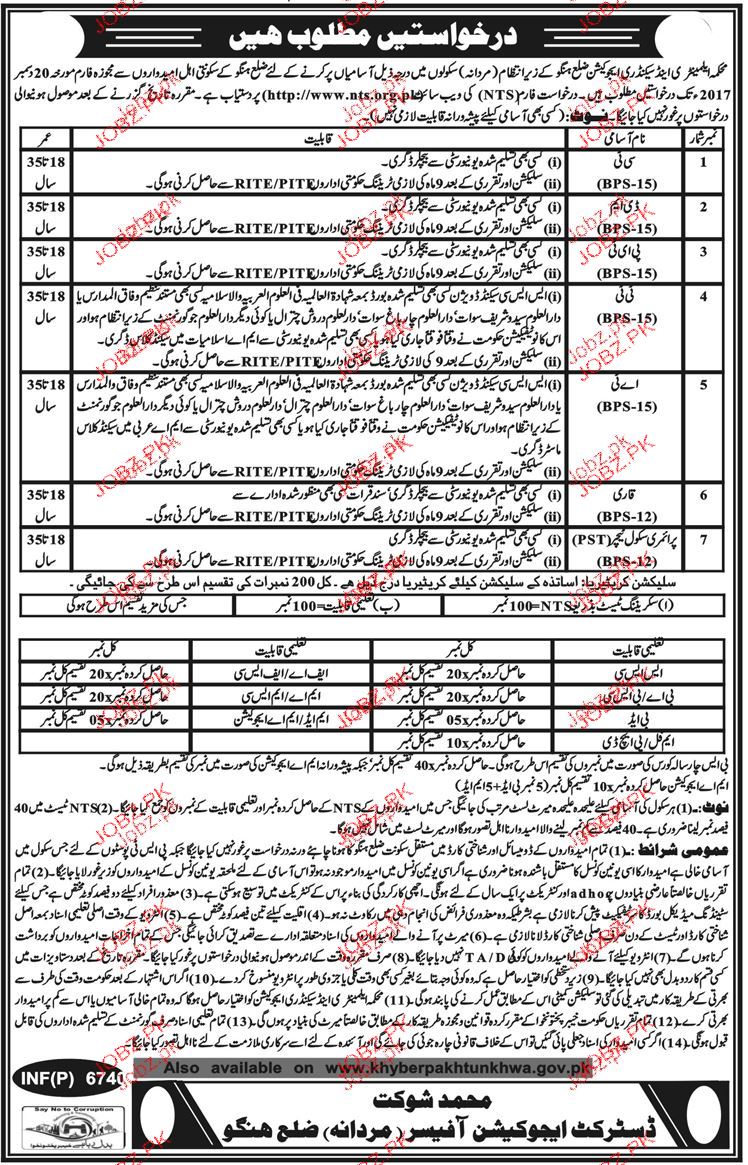 درخواستیں مطلوب ہیں
محکمہ ایلیمنٹری اینڈ سیکنڈری ایجوکیشن ضلع ہنگو کے زیر انتظام (مردانہ) سکولوں میں درجہ ذیل آسامیاں پر کرنے کے لئے ضلع ہنگو کے سکونتی اہل امیدواروں سے مجوزہ فارم مورخہ 20 دسمبر
2017ء تک درخواستیں مطلوب ہیں۔ درخواست فارم (NTS) کی ویب سائٹ (http://www.nts.org.pk) پر دستیاب ہے۔ مقررہ تاریخ گزرنے کے بعد موصول ہونیوالی
درخواستوں پر غور نہیں کیا جائیگا۔ نوٹ: (کسی بھی آسامی کیلئے پیشہ ورانہ قابلیت لازمی نہیں)۔
نمبر شمار نام آسامی قابلیت عمر
1 سی ٹی (BPS-15) (i) کسی بھی تسلیم شدہ یونیورسٹی سے بیچلر ڈگری۔ 18 تا 35 سال
(ii) سلیکشن اور تقرری کے بعد 9 ماہ کی لازمی ٹریننگ حکومتی اداروں RITE/PITE سے حاصل کرنی ہوگی۔
2 ڈی ایم (BPS-15) (i) کسی بھی تسلیم شدہ یونیورسٹی سے بیچلر ڈگری۔ 18 تا 35 سال
(ii) سلیکشن اور تقرری کے بعد 9 ماہ کی لازمی ٹریننگ حکومتی اداروں RITE/PITE سے حاصل کرنی ہوگی۔
3 پی ای ٹی (BPS-15) (i) کسی بھی تسلیم شدہ یونیورسٹی سے بیچلر ڈگری۔ 18 تا 35 سال
(ii) سلیکشن اور تقرری کے بعد 9 ماہ کی لازمی ٹریننگ حکومتی اداروں RITE/PITE سے حاصل کرنی ہوگی۔
4 ٹی ٹی (BPS-15) (i) ایس ایس سی سیکنڈ ڈویژن کسی بھی تسلیم شدہ بورڈ بمعہ شہادۃ العالمیہ فی العلوم العربیہ والاسلامیہ کسی بھی مستند تنظیم وفاق المدارس یا 18 تا 35 سال
دارالعلوم سیدو شریف سوات، دارالعلوم چار باغ سوات، دارالعلوم دروش چترال یا کوئی دیگر دارالعلوم جو گورنمنٹ کے زیر انتظام ہو اور
اس کا نوٹیفکیشن حکومت نے وقتاً فوقتاً جاری کیا ہو یا کسی بھی تسلیم شدہ یونیورسٹی سے ایم اے اسلامیات میں سیکنڈ کلاس ڈگری۔
(ii) سلیکشن اور تقرری کے بعد 9 کی لازمی ٹریننگ حکومتی اداروں RITE/PITE سے حاصل کرنی ہوگی۔
5 اے ٹی (BPS-15) (i) ایس ایس سی سیکنڈ ڈویژن کسی بھی تسلیم شدہ بورڈ بمعہ شہادۃ العالمیہ فی العلوم العربیہ والاسلامیہ کسی بھی مستند تنظیم وفاق والمدارس 18 تا 35 سال
یا دارالعلوم سیدو شریف سوات، دارالعلوم چار باغ سوات، دارالعلوم چترال، دارالعلوم دروش چترال یا کوئی دیگر دارالعلوم جو گورنمنٹ
کے زیر انتظام ہو اور اس کا نوٹیفکیشن حکومت نے وقتاً فوقتاً جاری کیا ہو یا کسی بھی تسلیم شدہ یونیورسٹی سے ایم اے عربی میں سیکنڈ کلاس
ماسٹر ڈگری۔
(ii) سلیکشن اور تقرری کے بعد 9 ماہ کی لازمی ٹریننگ حکومتی اداروں RITE/PITE سے حاصل کرنی ہوگی۔
6 قاری (BPS-12) (i) کسی بھی تسلیم شدہ یونیورسٹی سے بیچلر ڈگری، سند قرات کسی بھی منظور شدہ ادارے سے 18 تا 35 سال
(ii) سلیکشن اور تقرری کے بعد 9 ماہ کی لازمی ٹریننگ حکومتی اداروں RITE/PITE سے حاصل کرنی ہوگی۔
7 پرائمری سکول ٹیچر (PST) (BPS-12) (i) کسی بھی تسلیم شدہ یونیورسٹی سے بیچلر ڈگری 18 تا 35 سال
(ii) سلیکشن اور تقرری کے بعد 9 ماہ کی لازمی ٹریننگ حکومتی اداروں RITE/PITE سے حاصل کرنی ہوگی۔
سلیکشن کرائیٹیریا: اساتذہ کے سلیکشن کیلئے کرائیٹیریا درج ذیل ہے۔ کل 200 نمبرات کی تقسیم اس طرح سے کی جائیگی۔
(ا) سکریننگ ٹیسٹ بذریعہ NTS=100 نمبر (ب) تعلیمی قابلیت=100 نمبر جس کی مزید تقسیم اس طرح ہوگی
تعلیمی قابلیت کل نمبر تعلیمی قابلیت کل نمبر
ایس ایس سی حاصل کردہ نمبر x20 تقسیم کل نمبر ایف اے/ایف ایس سی حاصل کردہ نمبر x20 تقسیم کل نمبر
بی اے/بی ایس سی حاصل کردہ نمبر x20 تقسیم کل نمبر ایم اے/ایم ایس سی حاصل کردہ نمبر x20 تقسیم کل نمبر
بی ایڈ حاصل کردہ نمبر x05 تقسیم کل نمبر ایم ایڈ/ایم اے ایجوکیشن حاصل کردہ نمبر x05 تقسیم کل نمبر
ایم فل/پی ایچ ڈی حاصل کردہ نمبر x10 تقسیم کل نمبر
بی ایس چار سالہ کورس کی صورت میں نمبروں کی تقسیم اس طرح ہوگی۔ حاصل کردہ نمبر x40 تقسیم کل نمبر، جبکہ پیشہ ورانہ ایم اے ایجوکیشن کی صورت میں نمبر کی تقسیم بطریقہ ذیل ہوگی۔
ایم اے ایجوکیشن حاصل کردہ نمبر x10 تقسیم کل نمبر (5 نمبر بی ایڈ+5 ایم ایڈ)
نوٹ:۔ (1) ہر سکول کی آسامی کیلئے علیحدہ علیحدہ میرٹ لسٹ مرتب کی جائیگی جس میں امیدواروں کے NTS کے حاصل کردہ نمبر اور تعلیمی قابلیت کے نمبروں کو جمع کیا جائیگا۔ (2) NTS ٹیسٹ میں 40
فیصد نمبر لینا ضروری ہے۔ 40 فیصد سے کم نمبر لینے والا امیدوار نااہل تصور ہوگا اور میرٹ لسٹ میں شامل نہیں ہوگا۔
عمومی شرائط:۔ (1) تمام امیدواروں کے ڈومیسائل اور شناختی کارڈ میں مستقل سکونت ضلع ہنگو کا ہونا چاہئے ورنہ درخواست پر غور نہیں کیا جائیگا جبکہ پی ایس ٹی پوسٹوں کے لئے جس سکول میں
آسامی خالی ہے امیدوار کا اسی یونین کونسل کا مستقل باشندہ ہونا ضروری ہے اگر اسی یونین کونسل میں امیدوار موجود نہ ہو تو اس آسامی کے لئے ملحقہ یونین کونسل کے امیدواروں کو زیر غور لایا جائیگا۔ (2) تمام
تقرریاں خالصتاً عارضی بنیادوں پر adhoc اور کنٹریکٹ پر ایک سال کے لئے ہونگی۔ اچھی کارکردگی کی بناء پر اس کے کنٹریکٹ میں توسیع ہو سکتی ہے۔ (3) معذور افراد کیلئے دو فیصد کوٹہ مختص ہے جس کیلئے
سٹینڈنگ میڈیکل بورڈ کا سرٹیفکیٹ پیش کرنا لازمی ہے بشرطیکہ وہ معذوری فرائض کی انجام دہی میں رکاوٹ نہ ہو۔ (4) اقلیت کیلئے تین فیصد کوٹہ مختص ہے۔ (5) انٹرویو کے وقت اصلی تعلیمی اسناد بمعہ اصل
شناختی کارڈ اور ٹیسٹ کے دن صرف اصلی شناختی کارڈ لانا لازمی ہے۔ (6) میرٹ پر آنے والے امیدواروں کی اسناد متعلقہ ادارے سے تصدیق کرائی جائیگی جس کے تمام اخراجات امیدواروں کو برداشت
کرنا ہوں گے۔ (7) انٹرویو کیلئے آنے والے امیدواروں کو کوئی TA/DA نہیں دیا جائیگا۔ (8) صرف مقررہ وقت کے اندر موصول ہونیوالی درخواستوں پر غور کیا جائیگا۔ مقررہ تاریخ کے بعد دستاویزات میں
کسی قسم کا ردوبدل بھی نہیں کیا جائیگا۔ (9) زیر دستخطی کو اختیار حاصل ہے کہ وہ کوئی وجہ بتائے بغیر کسی بھی وقت کلی یا جزوی طور پر انٹرویو منسوخ کر دے۔ (10) اگر اس اشتہار کے بعد حکومت وقت کی طرف سے
بھرتی کے طریقہ کار میں تبدیلی کی گئی تو سلیکشن کمیٹی اس کے مطابق عمل کرنے کی پابند ہوگی۔ (11) محکمہ ایلیمنٹری اینڈ سیکنڈری ایجوکیشن کو اختیار حاصل ہوگا کہ وہ تمام خالی آسامیوں یا اس سے کم پر امیدوار
بھرتی کرے۔ (12) تمام تقرریاں حکومت خیبر پختونخوا کے مقرر کردہ قوانین و مجوزہ طریقہ کار کے مطابق خالصتاً میرٹ کی بنیاد پر ہوں گی۔ (13) تمام تعلیمی اسناد صرف گورنمنٹ کے تسلیم شدہ اداروں کی قابل
قبول ہونگی۔ (14) اگر کسی امیدوار کی اسناد جعلی پائی گئیں تو اس کے خلاف قانونی چارہ جوئی کی جائے گی اور آئندہ کے لئے اسے سرکاری ملازمت کے لئے نااہل تصور کیا جائیگا۔
INF(P) 6740
Also available on www.khyberpakhtunkhwa.gov.pk
Say No to Corruption
محمد شوکت
ڈسٹرکٹ ایجوکیشن آفیسر (مردانہ) ضلع ہنگو